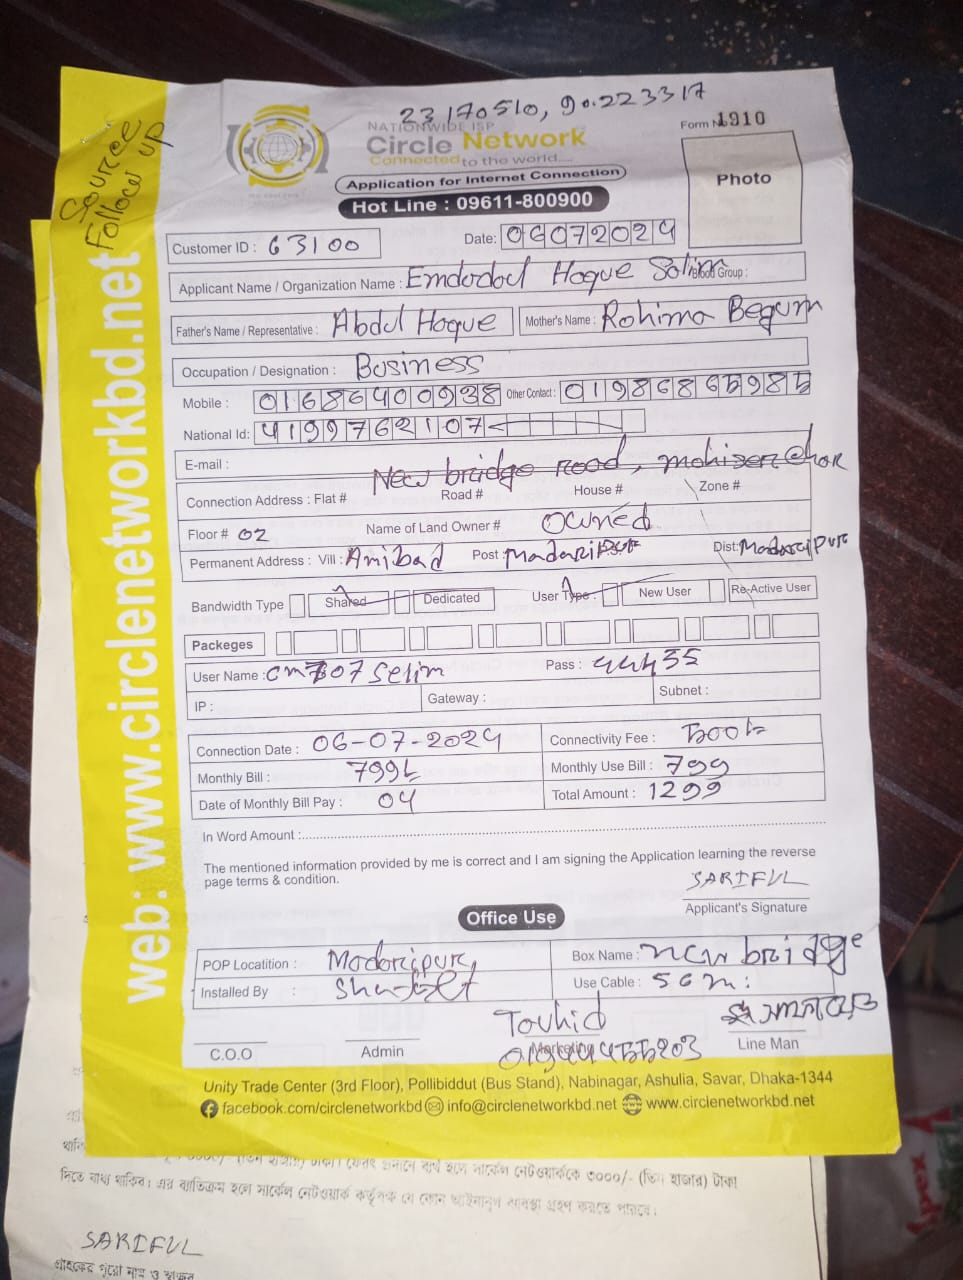 23170510, 90.223317
Form No 1910
NATIONWIDE ISP
Circle Network
Connected to the world....
Application for Internet Connection
Hot Line : 09611-800900
Photo
Source
Follow up
web: www.circlenetworkbd.net
Customer ID : 63100
Date: 06072024
Applicant Name / Organization Name : Emdodol Hoque Solim Blood Group :
Father's Name / Representative : Abdul Hoque Mother's Name : Rohima Begum
Occupation / Designation : Business
Mobile : 01686400938 Other Contact : 01986865985
National Id: 4199762107
E-mail :
New bridge road,
Connection Address : Flat # Road # House # Zone #
Floor # 02 Name of Land Owner # Owned
Permanent Address : Vill : Amibad Post : Madaripur Dist: Madaripur
Bandwidth Type Shared Dedicated User Type : New User Re-Active User
Packeges
User Name : Pass :
IP : Gateway : Subnet :
Connection Date : 06-07-2024 Connectivity Fee :
Monthly Bill : Monthly Use Bill : 799
Date of Monthly Bill Pay : 04 Total Amount : 1299
In Word Amount :
The mentioned information provided by me is correct and I am signing the Application learning the reverse
page terms & condition.
SARIFUL
Applicant's Signature
Office Use
POP Locatition : Madaripur, Box Name : new bridge
Installed By : Use Cable : 56 m:
Touhid
C.O.O Admin Marketing Line Man
Unity Trade Center (3rd Floor), Pollibiddut (Bus Stand), Nabinagar, Ashulia, Savar, Dhaka-1344
facebook.com/circlenetworkbd info@circlenetworkbd.net www.circlenetworkbd.net
দিতে বাধ্য থাকিব। এর ব্যতিক্রম হলে সার্কেল নেটওয়ার্ক কর্তৃপক্ষ যে কোন আইনানুগ ব্যবস্থা গ্রহণ করতে পারবে।
SARIFUL